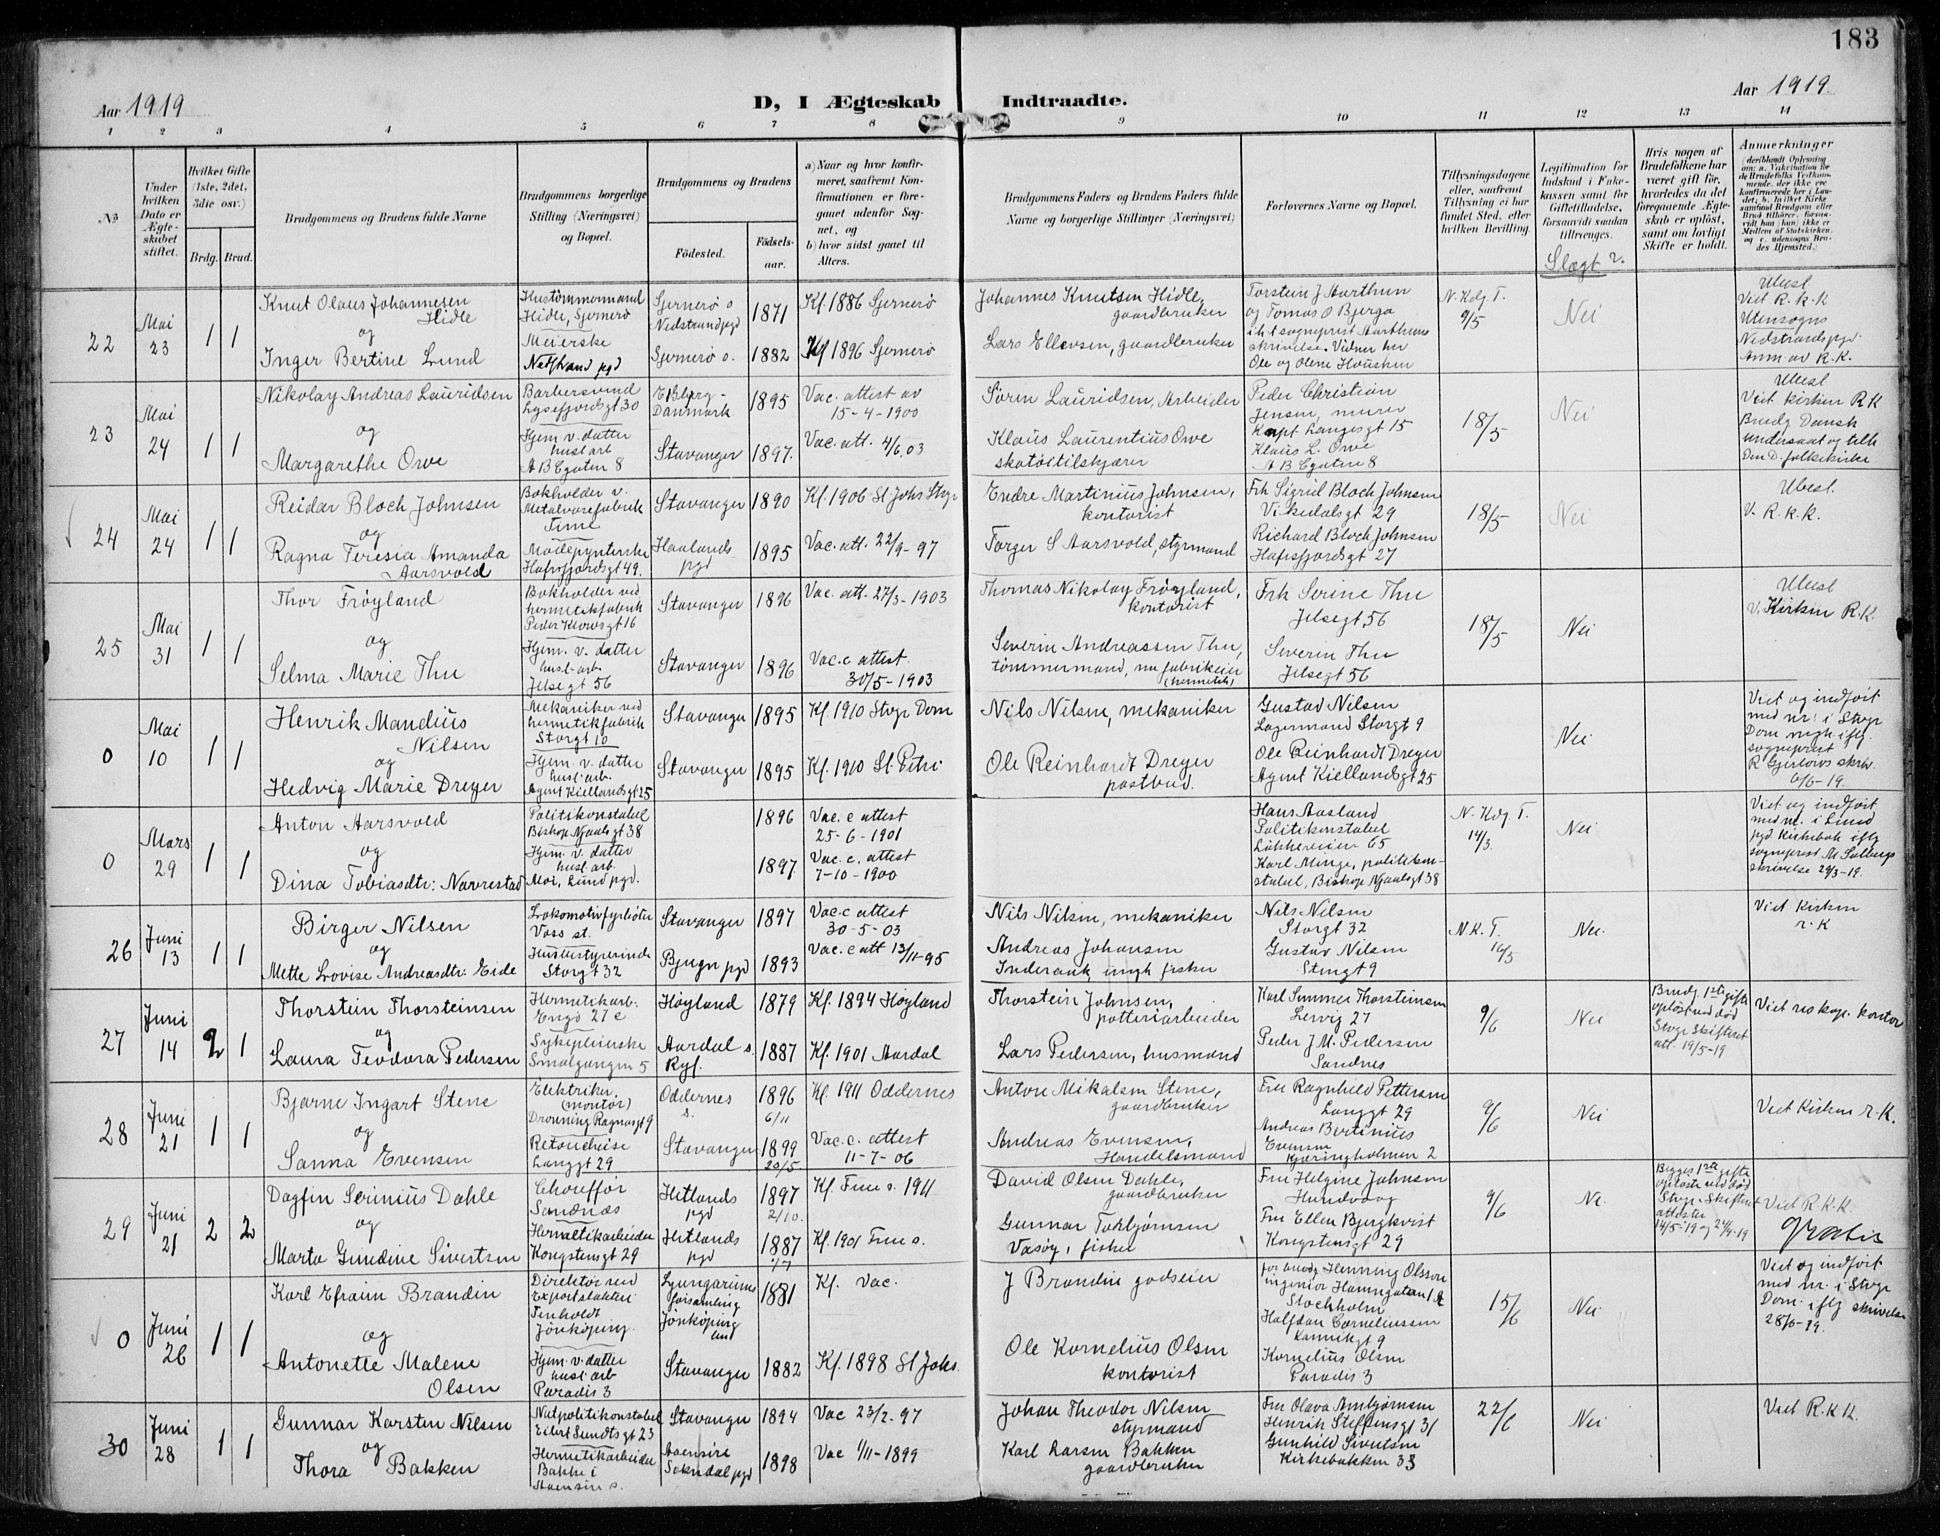 183
Aar 1919
D, I Ægteskab Indtraadte.
Aar 1919
1 2 3 4 5 6 7 8 9 10 11 12 13 14
No
Under hvilken Dato er Ægteskabet stiftet.
Hvilket Gifte (1ste, 2det, 3die osv.)
Brdg. Brud.
Brudgommens og Brudens fulde Navne
Brudgommens borgerlige Stilling (Næringsvei) og Bopæl.
Brudgommens og Brudens
Fødested.
Fødselsaar.
a) Naar og hvor konfirmeret, saafremt Konfirmationen er foregaaet udenfor Sognet, og
b) hvor sidst gaaet til Alters.
Brudgommens Faders og Brudens Faders fulde Navne og borgerlige Stillinger (Næringsvei)
Forlovernes Navne og Bopæl.
Tillysningsdagene eller, saafremt Tillysning ei har fundet Sted, efter hvilken Bevilling.
Legitimation for Indskud i Enkekassen samt for Giftetilladelse, forsaavidt saadan tiltrænges.
Slægt ?
Hvis nogen af Brudefolkene har været gift før, hvorledes da det foregaaende Ægteskab er opløst, samt om lovligt Skifte er holdt.
Anmerkninger
22
Mai 23
1 1
Knut Olaus Johannesen Hidle
og
Inger Bertine Lund
Hustømmermand
Hidle, Sjernerø
Meierske
Nedstrand pgd
Sjernerø s
Nedstrand pgd
1871
Kf 1886 Sjernerø
Sjernerø s.
1882
Kf 1896 Sjernerø
Johannes Knutsen Hidle,
gaardbruker
Lars Ellevsen, gaardbruker
Torstein J Aarthun
og Tomas O Bjerga
i h t sogneprest Aarthuns
skrivelse. Vidner her
Ole og Olene Housken
N. Kdg T.
9/5
Nei
Ubesl
Viet R. k. K
Utensogns
Nedstrands pgd.
Anm av R.K.
23
Mai 24
1 1
Nikolay Andreas Lauridsen
og
Margarethe Owe
Barbersvend
Lysefjordsgt 30
Hjem. v. datter
husl arb
A B Egaten 8
Esbjerg - Danmark
1895
Vac. attest av
15-4-1900
Stavanger
1897.
Vac. att. 4/6.03
Søren Lauridsen, Arbeider
Klaus Laurentius Owe
skotøitilskjærer
Peder Christian
Jensen, murer
Kapt Langesgt 15
Klaus L. Owe
A B Egaten 8
18/5
Nei
Ubesl
Viet kirken R K
Brudg Dansk
undersaat og tilh
Den D. folkekirke
24
Mai 24
1 1
Reidar Bloch Johnsen
og
Ragna Teresia Amanda
Aarsvold
Bokholder v.
Metalvarefabrik
Time
Modepynterske
Hafrsfjordsgt 49.
Stavanger
1890
Kf. 1906 St Johs Stvgr
Haalands pgd
1895
Vac. att. 22/9-97
Endre Martinius Johnsen,
kontorist
Torger S Aarsvold, styrmand
Frk Sigrid Bloch Johnsen
Vikedalsgt 29
Richard Bloch Johnsen
Hafrsfjordsgt 27
18/5
Nei
Ubesl.
V. R. k. K.
25
Mai 31
1 1
Thor Frøyland
og
Selma Marie Thu
Bokholder ved
hermetikfabrik
Peder Klowsgt 16
Hjem. v. datter
husl. arb.
Jelsegt 56
Stavanger
1896
Vac. att. 27/3-1903
Stavanger
1896
Vac. c attest
30/5-1903
Thomas Nikolay Frøyland,
kontorist
Severin Andreassen Thu,
tømmermand, nu fabrikeier
(hermetik)
Frk Serine Thu
Jelsegt 56
Severin Thu
Jelsegt 56
18/5
Nei
Ubesl
V. Kirken R.K.
0
Mai 10
1 1
Henrik Mandius
Nilsen
og
Hedvig Marie Dreyer
Mekaniker ved
hermetikfabrik
Storgt 10
Hjem. v. datter
husl arb.
Agent Kiellandsgt 25
Stavanger
1895
Kf. 1910 Stvgr Dom
Stavanger
1895
Kf. 1910 St. Petri
Nils Nilsen, mekaniker
Ole Reinhardt Dreyer
postbud.
Gustav Nilsen
Lagermand Storgt 9
Ole Reinhardt Dreyer
Agent Kiellandsgt 25
Nei
Viet og indført
med nr. i Stvgr
Dom. mgh. iflg.
sogneprest
R Gjerløws skriv.
6/6-19.
0
Mars 29
1 1
Anton Aarsvold
og
Dina Tobiasdtr: Navrestad
Politikonstabel
Bishop Njaalsgt 38
Hjem. v. datter
husl arb
Moi, Lund pgd.
1896
Vac. c attest
25-6-1901
1897
Vac. c. attest
7-10-1900
Hans Aasland
Politikonstabel
Løkkeveien 65
Karl Minge, politikonstabel, Bishop Njaalsgt 38
N. Kdg T.
14/3.
Nei
Viet og indført
med nr. i Lund
pgd Kirkebok iflg
sogneprest M. Solbergs
skrivelse 29/3-19.
26
Juni 13
1 1
Birger Nilsen
og
Mette Lovise Andreasdtr: Eide
Lokomotivfyrbøter
Voss st.
Husbestyrerinde
Storgt 32
Stavanger
1897
Vac. c attest
30-5-03
Bjugn pgd
1893
Vac. c att 13/11-95
Nils Nilsen, mekaniker
Andreas Johansen
Nils Nilsen
Storgt 32
Gustav Nilsen
Storgt 9
N. K. T.
16/5
Nei.
Viet Kirken
r.K
27
Juni 14
2 1
Thorstein Thorsteinsen
og
Laura Teodora Pedersen
Hermetikarb.
Engø 27 c
Sykepleierske
Smalgangen 5
Høyland
1879
Kf. 1894 Høyland
Aardal s. Ryf.
1887
Kf. 1901 Aardal
Thorstein Johnsen,
potteriarbeider
Lars Pedersen, husmand
Karl Sommer Thorsteinsen
Lervig 27
Peder J. M. Pedersen
Sandnes
9/6
Nei
Brudg. 1ste gifte
opløst ved død
Stvgr Skifteret
att. 19/5-19
Viet res kap. kontor
28
Juni 21
1 1
Bjarne Ingart Stene
og
Sanna Evensen
Elektriker
(montør)
Dronning Ragnasgt 9
Retoucheise
Langgt 29
Oddernes s.
1896
6/11
Kf. 1911 Oddernes
Stavanger
1899
20/5
Vac. c. attest
11-7-06
Antore Mikalsen Stene,
gaardbruker
Andreas Evensen,
Handelsmand
Fru Ragnhild Pettersen
Langgt 29
Andreas Bertinius
Evensen
Kjæringholmen 2
9/6
Nei
Viet Kirken r.K.
29
Juni 21
2 2
Dagfin Serinius Dahle
og
Marta Gundine Sivertsen
Chouffør
Sandnæs
Hermetikarbeider
Kongstensgt 29
Hetlands pgd
1897
2/10.
Kf. Time s. 1911
Hetlands pgd
1887
Kf. 1901 Time s.
David Olsen Dahle,
gaardbruker
Gunnar Torbjørnsen
Vasøy, fisker
Fru Helgine Johnsen
Hundvaag
Fru Ellen Bjergkvist
Kongstensgt 29
9/6
Ne.
Begges 1ste gifte
opløste ved død
Stvgr. Skifteret
attester
14/5-19 og 24/4-19
Viet R.k.K.
Gratis
0
Juni 26
1 1
Karl Efraim Brandin
og
Antonette Malene
Olsen
Direktør ved
Exportslakteri
Tenholdt
Jönköping.
Hjem. v. datter
husl arb
Paradis 3
Ljungarums
forsamling
Jönköping
1881
Kf. Vac.
Stavanger
1882
Kf. 1898 St Johs.
J Brandin godseier
Ole Kornelius Olsen
kontorist
for brudg Henning Olsson
ingeniør Hamngatan 1 A
Stockholm
Halfdan Corneliussen
Kannikgt 9
Kornelius Olsen
Paradis 3
15/6
Nei
Viet og indført
med nr. i Stvgr
Dom. iflg skrivelse
28/6-19.
30
Juni 28
1 1
Gunnar Karsten Nilsen
og
Thora Bakken
Natpolitikonstabel
Eilert Sundtsgt 23
Hermetikarbeider
Bakke i
Aaensire s.
Stavanger
1894
Vac 23/2-97
Aaensire
Sokndal pgd
1898
Vac 1/11-1899
Johan Theodor Nilsen
styrmand
Karl Larsen Bakken
gaardbruker
Fru Olava Ambjørnsen
Henrik Steffensgt 31
Gunhild Sivertsen
Kirkebakken 33
22/6
Nei
Viet R.k.K.